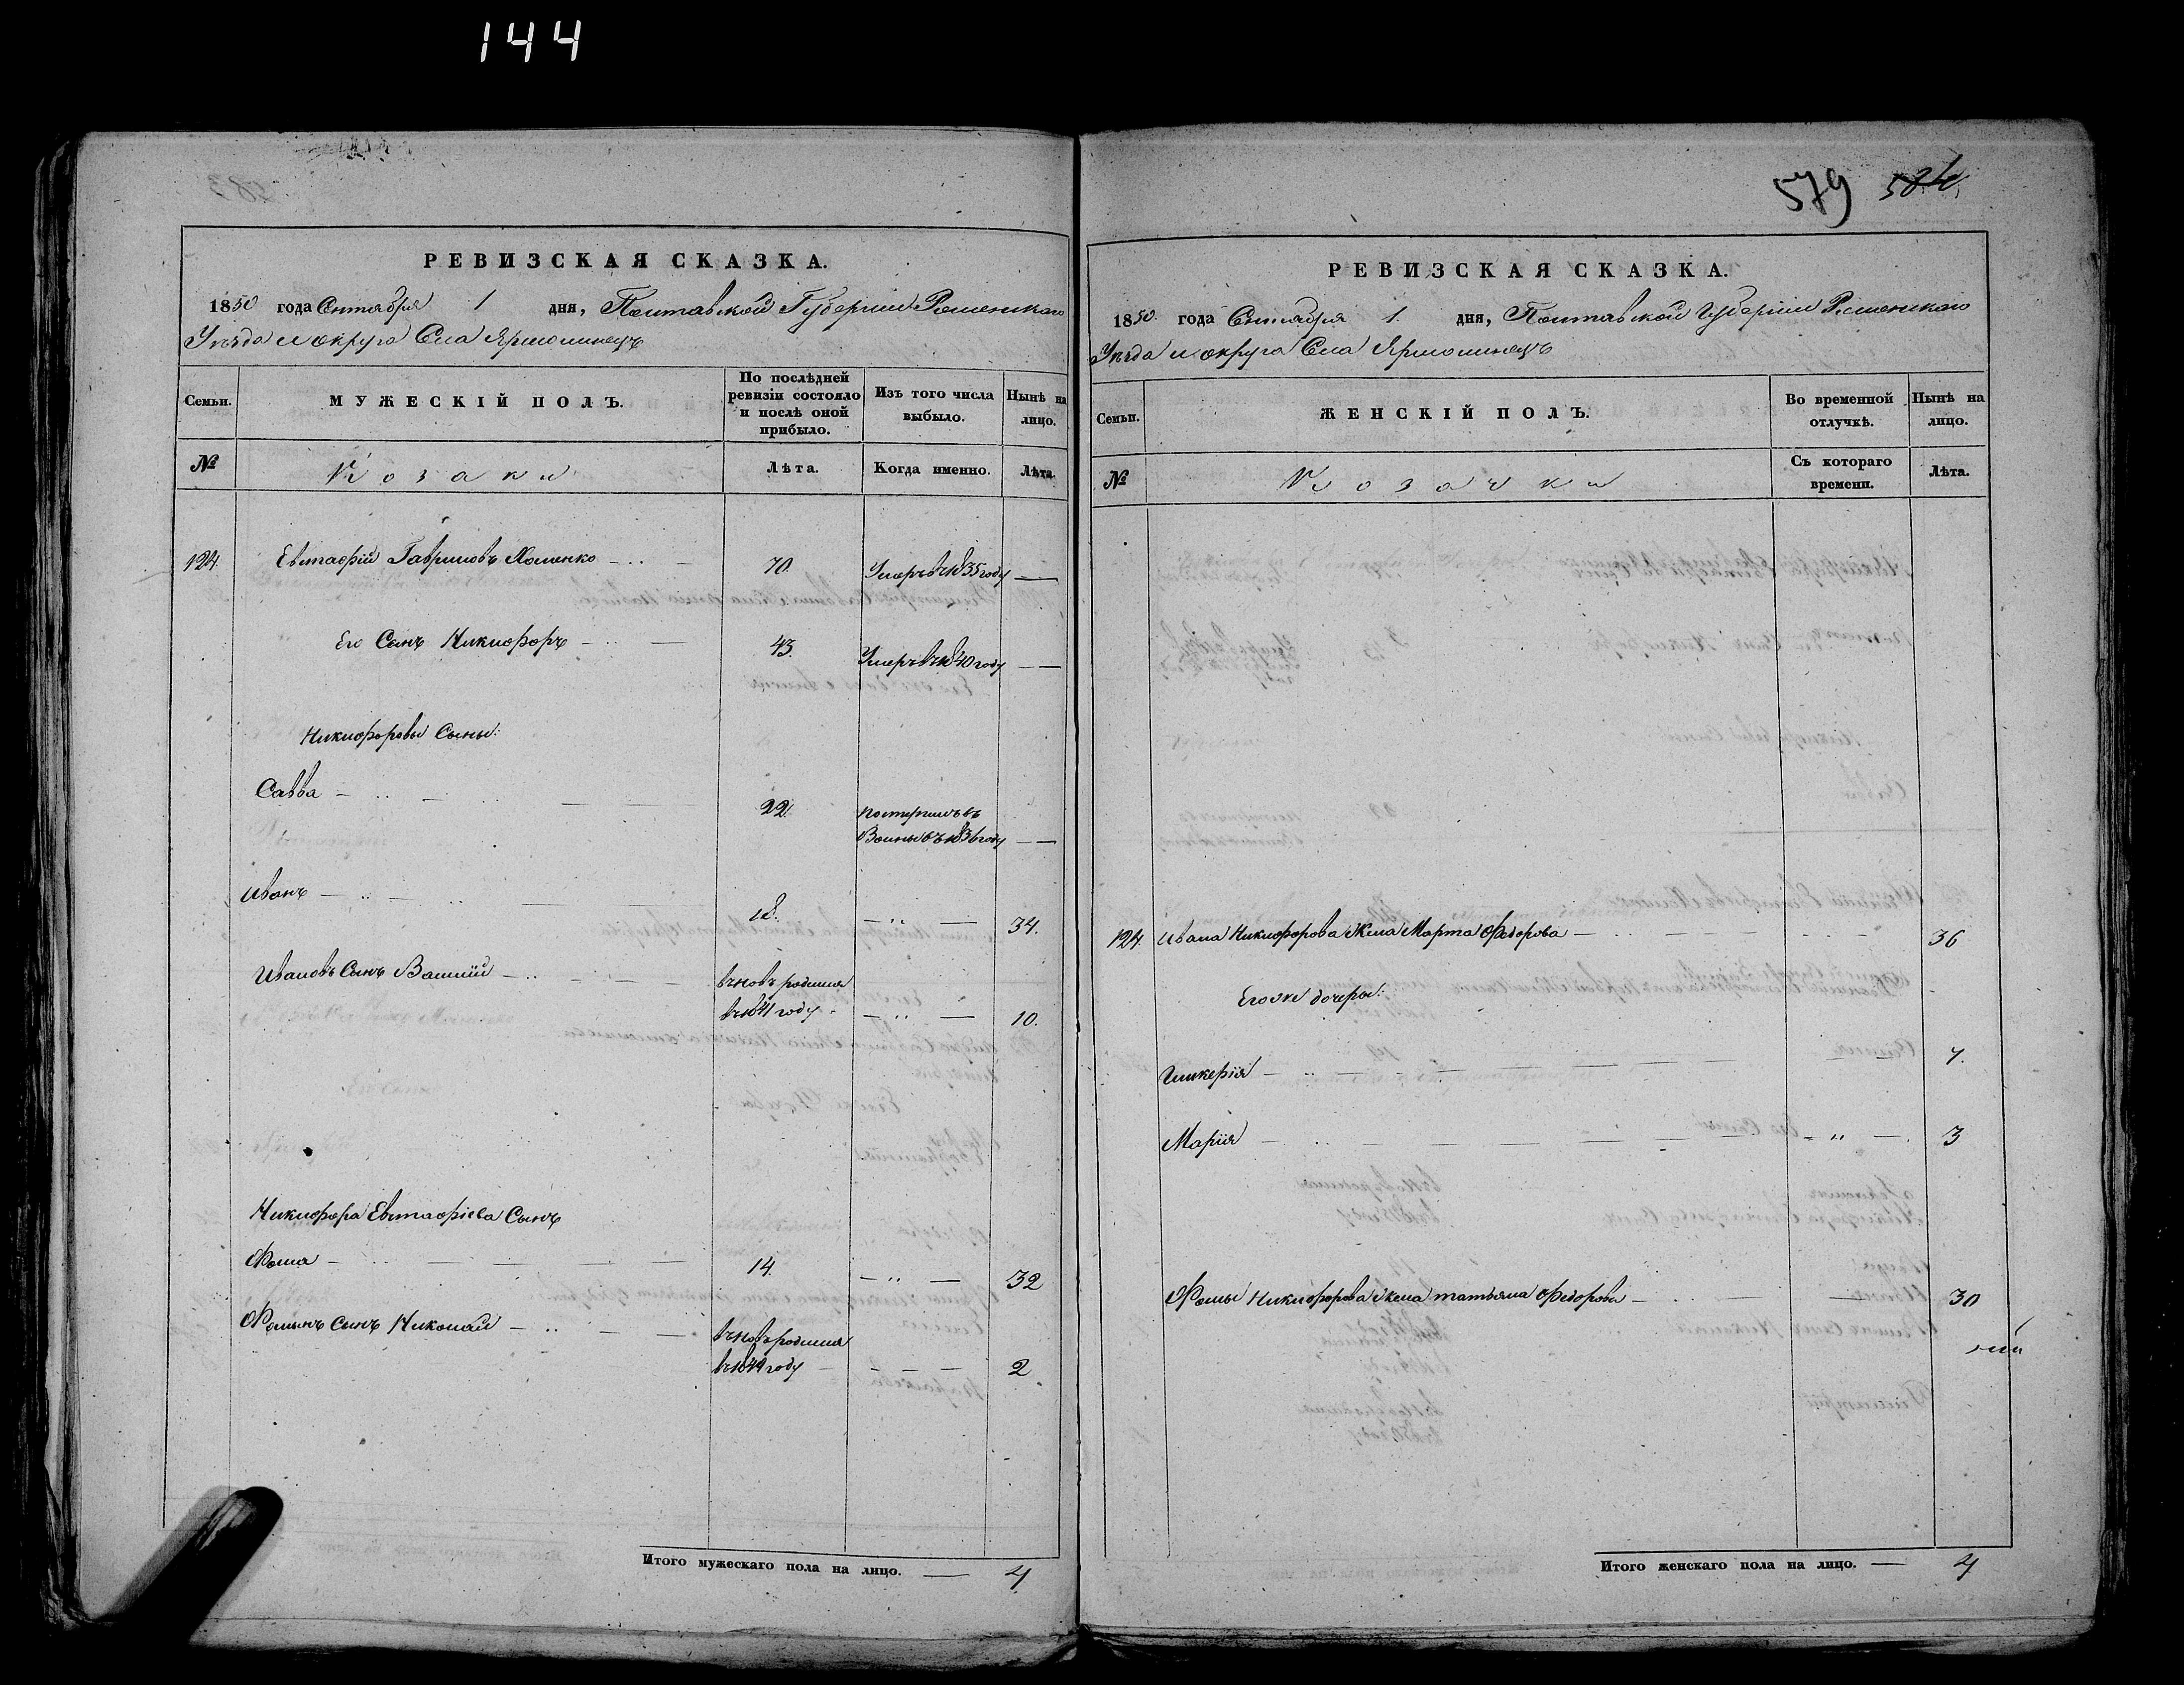 144
РЕВИЗСКАЯ СКАЗКА.
1850 года Сентября 1 дня, Полтавской Губернии Роменскаго
Уѣзда и округа Села Ярмолинецъ
Семьи. МУЖЕСКІЙ ПОЛЪ. По послѣдней ревизіи состояло и послѣ оной прибыло. Изъ того числа выбыло. Нынѣ на лицо.
№ Козаки Лѣта. Когда именно. Лѣта.
124. Евстафій Гавриловъ Хоменко 70. Умеръ въ 1835 году
Его Сынъ Никифоръ 43. Умеръ въ 1840 году
Никифоровы Сыны:
Савва 22. поступилъ въ
Воины въ 1836 году
Иванъ 18. 34.
Ивановъ Сынъ Василій вновь родился
въ 1841 году 10.
Никифора Евстафіева Сынъ
Фома 14. 32
Фоминъ Сынъ Николай вновь родился
въ 1849 году 2
Итого мужескаго пола на лицо. 4
579 584
РЕВИЗСКАЯ СКАЗКА.
1850. года Сентября 1. дня, Полтавской Губерніи Роменскаго
Уѣзда и округа Села Ярмолинецъ
Семьи. ЖЕНСКІЙ ПОЛЪ. Во временной отлучкѣ. Нынѣ на лицо.
№ Козачки Съ котораго времени. Лѣта.
124. Ивана Никифорова Жена Марта Федорова 36
Его же дочери:
Гликерія 7.
Марія 3
Фомы Никифорова Жена татьяна Федорова 30
Итого женскаго пола на лицо. 4